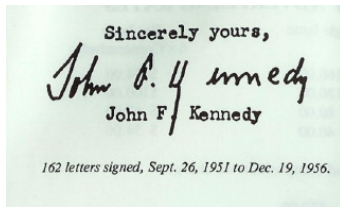 Sincerely yours,
John F. Kennedy
John F. Kennedy
162 letters signed, Sept. 26, 1951 to Dec. 19, 1956.